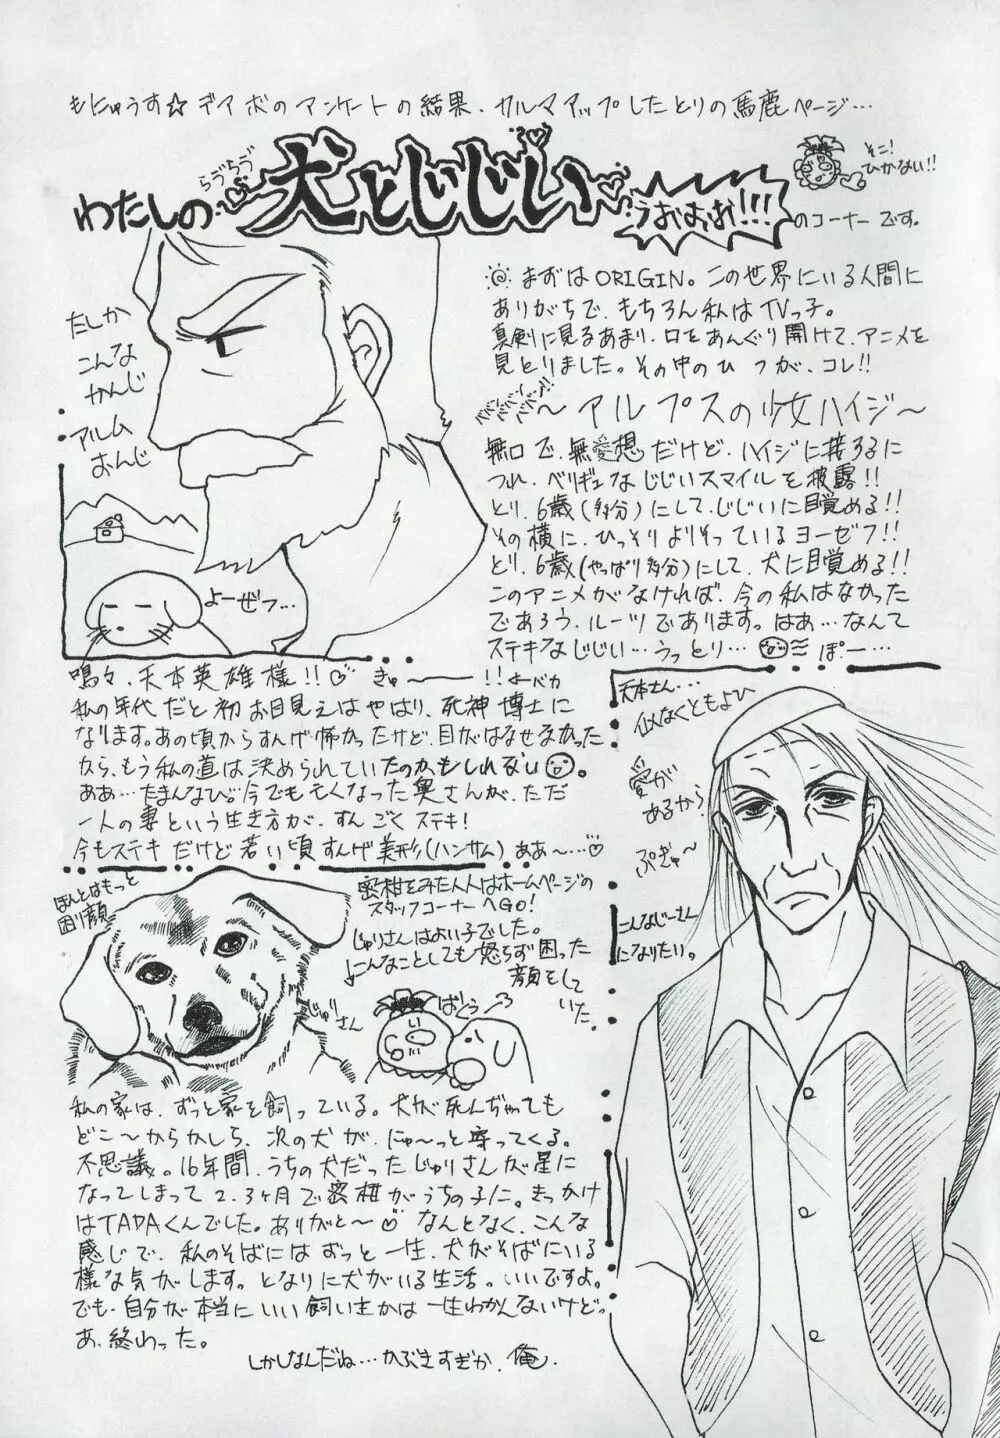 もにゅうす☆デアボのアンケートの結果、カルマアップしたとりの馬鹿ページ…
わたしの
らづちづ
犬とじじい
うおぉお!!!
のコーナーです。
そこ!
ひかない!!
たしか
こんな
かんじ
アルム
おんじ
よーぜフ…
まずはORIGIN。この世界にいる人間に
ありがちで、もちろん私はTVっ子。
真剣に見るあまり、口をあんぐり開けて、アニメを
見とりました。その中のひとつが、コレ!!
〜アルプスの少女ハイジ〜
無口で、無愛想だけど、ハイジに接するに
つれ、ベリギュなじじいスマイルを披露!!
とり、6歳(多分)にして、じじいに目覚める!!
その横に、ひっそりよりそっているヨーゼフ!!
とり、6歳(やっぱり多分)にして、犬に目覚める!!
このアニメがなければ、今の私はなかった
であろう、ルーツであります。はあ…なんて
ステキなじじい…うっとり… ぽー…
鳴々、天本英雄様!!♡ きゅ〜——!!
私の年代だと初お目見えはやはり、死神博士に
なります。あの頃からすんげ怖かったけど、目がはなせなかった
から、もう私の道は決められていたのかもしれない。
ああ…たまんなひ。今でも亡くなった奥さんが、ただ
一人の妻という生き方が、すんごくステキ!
今もステキだけど若い頃すんげ美形(ハンサム)ああ〜…♡
天本さん…
似なくともよひ
愛が
あるから
ぷぎゅ〜
こんなじーさん
になりたい。
ほんとはもっと
困り顔
蜜柑をみた人はホームページの
スタッフコーナーへGO!
じゅりさんはよい子でした。
こんなことしても怒らず困った
顔をして
いた。
じゅりさん
ばくぅ
私の家は、ずっと家を飼っている。犬が死んぢゃっても
どこ〜からかしら、次の犬が、にゅ〜っと寄ってくる。
不思議。16年間、うちの犬だったじゅりさんが星に
なってしまって2、3ヶ月で蜜柑がうちの子に。きっかけ
はTADAくんでした。ありがと〜♡ なんとなく、こんな
感じで、私のそばにはずっと一生、犬がそばにいる
様な気がします。となりに犬がいる生活。いいですよ。
でも、自分が本当にいい飼い主かは一生わかんないけどっ
あ、終わった。
しかしなんだね…かぶきすぎか、俺。